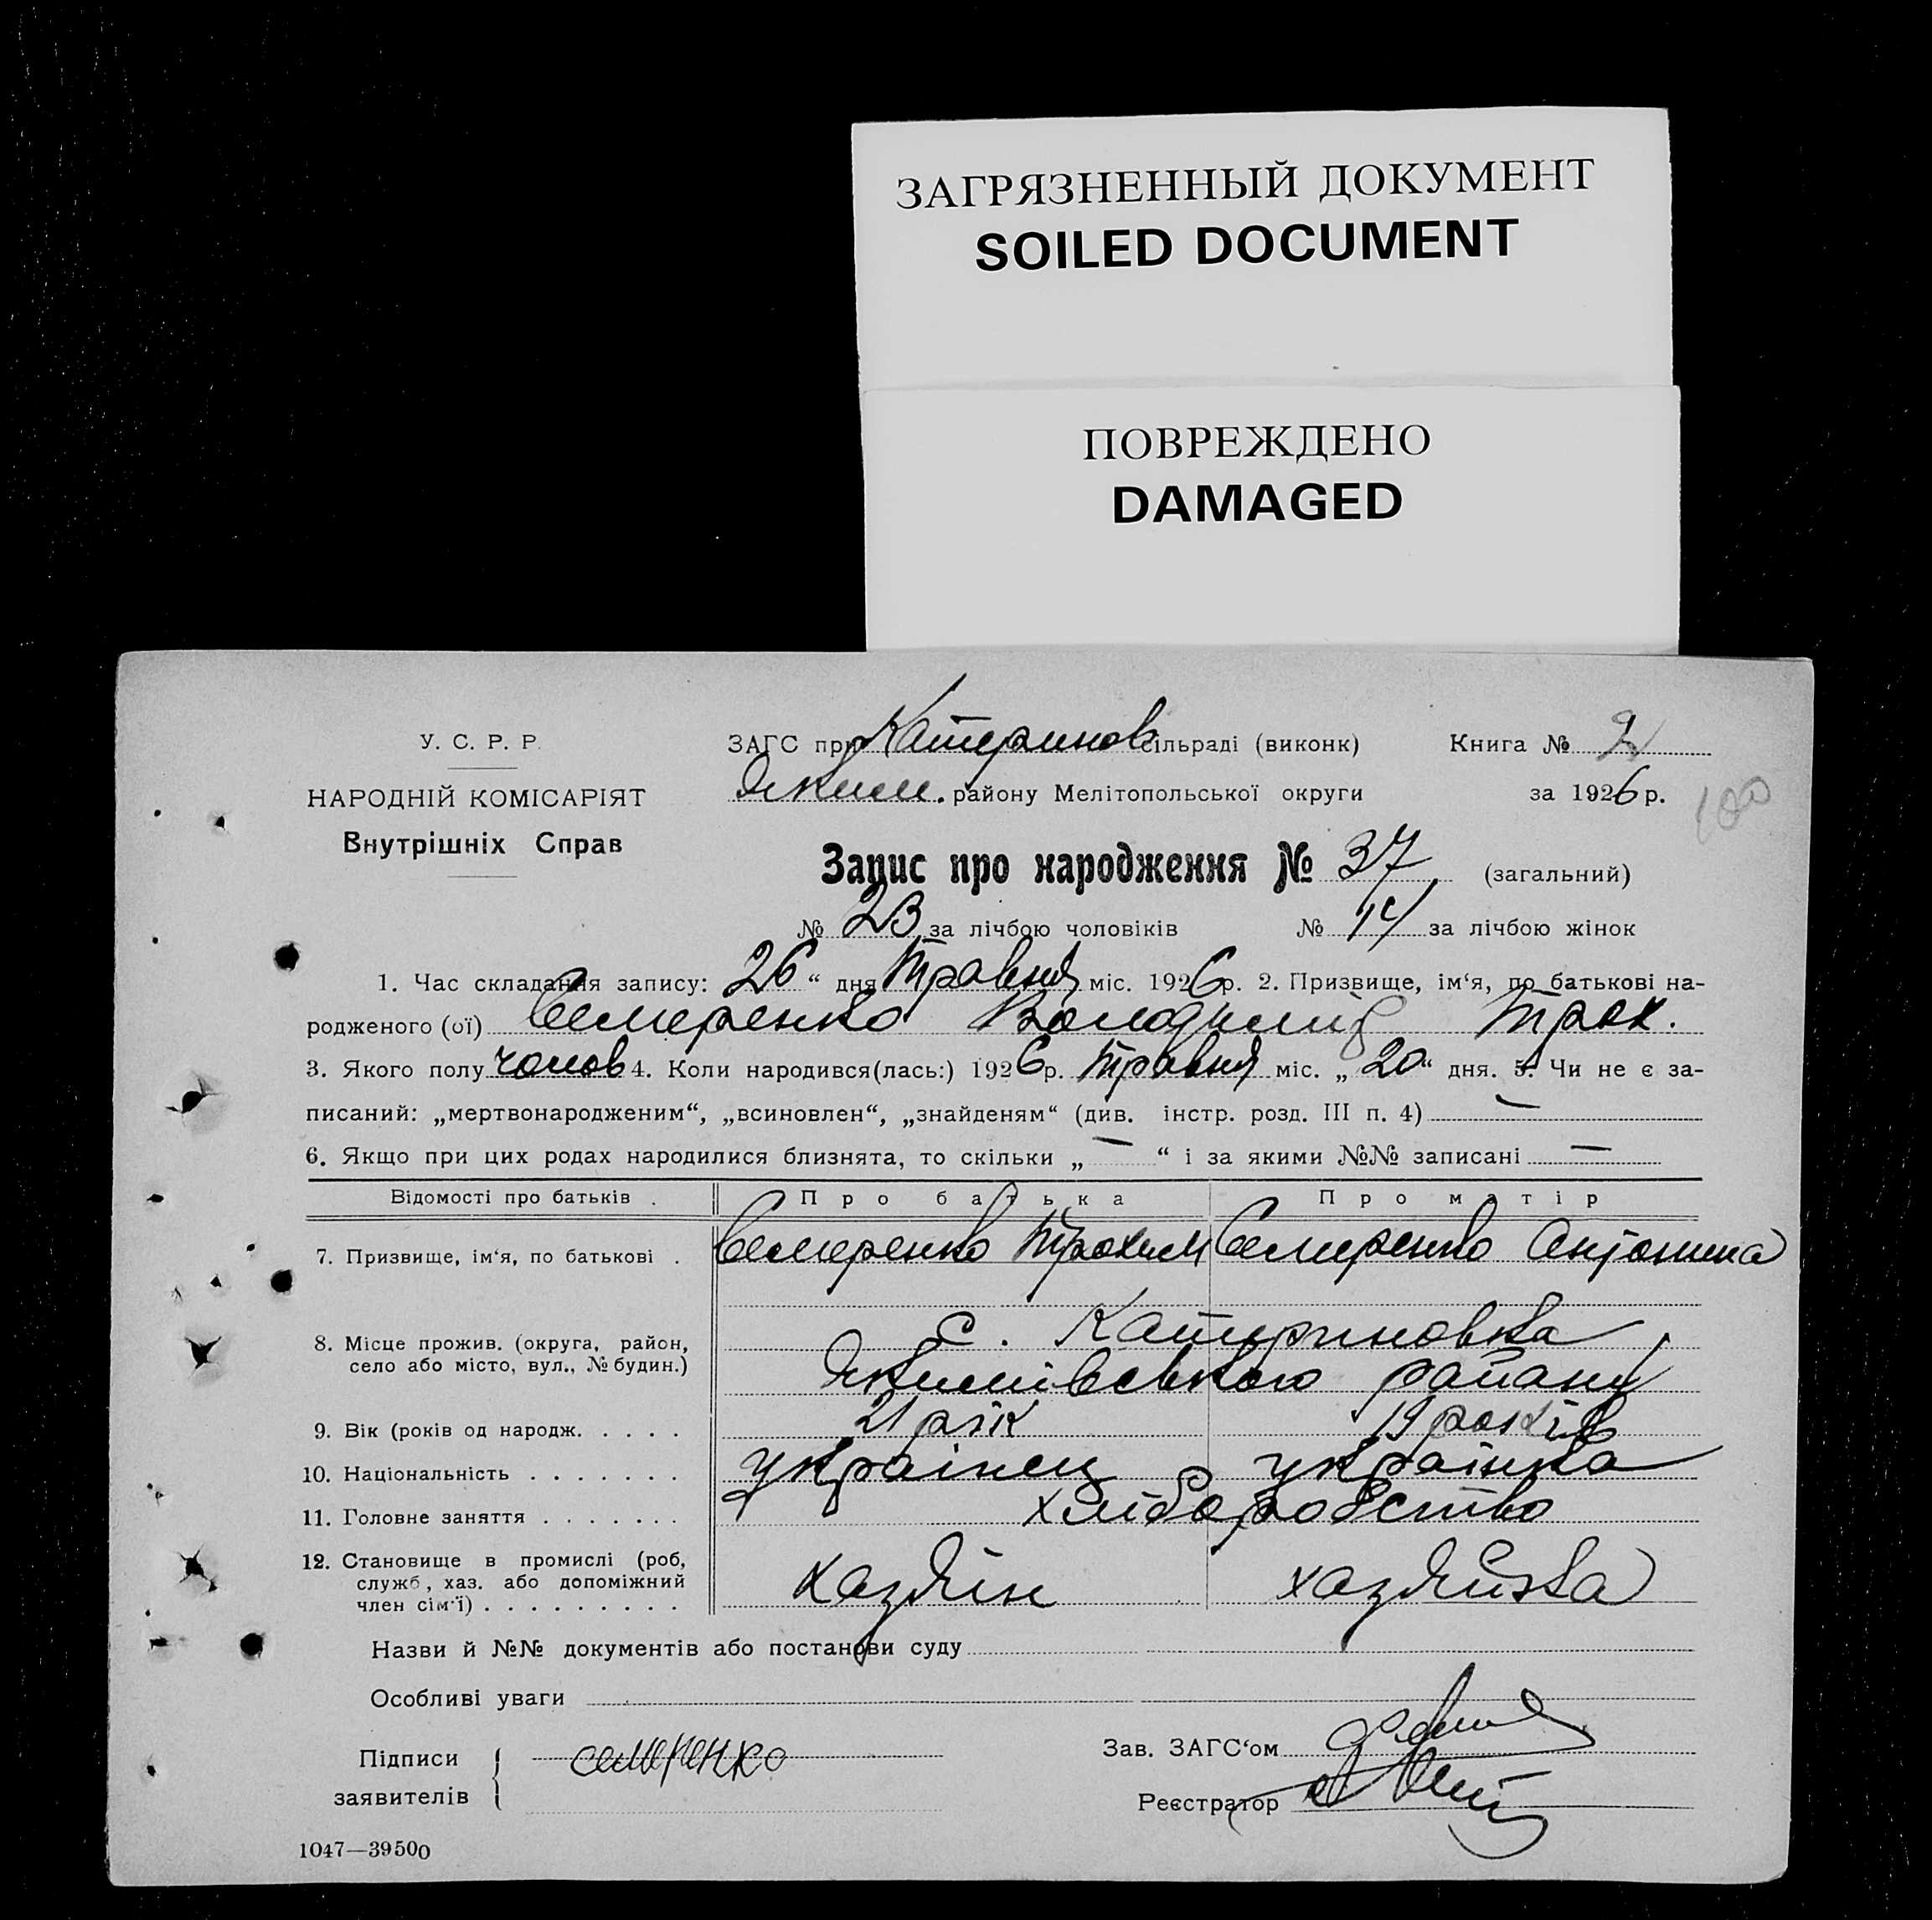 ЗАГРЯЗНЕННЫЙ ДОКУМЕНТ
SOILED DOCUMENT
ПОВРЕЖДЕНО
DAMAGED
У. С. Р. Р.
НАРОДНІЙ КОМІСАРІЯТ
Внутрішніх Справ
ЗАГС при Катеринов сільраді (виконк) Книга № 2
Яким. району Мелітопольської округи за 1926 р.
100
Запис про народження № 37 (загальний)
№ 23 за лічбою чоловіків № 14 за лічбою жінок
1. Час складання запису: 26 “ дня Травня міс. 1926 р. 2. Призвище, ім‘я, по батькові на-
родженого (ої) Семеренко Володимір Трох.
3. Якого полу чолов 4. Коли народився(лась:) 1926 р. Травня міс. „ 20 “ дня. 5. Чи не є за-
писаний: „мертвонародженим“, „всиновлен“, „знайденям“ (див. інстр. розд. III п. 4) —
6. Якщо при цих родах народилися близнята, то скільки „ — “ і за якими №№ записані —
Відомості про батьків . Про батька Про матір
7. Призвище, ім‘я, по батькові . Семеренко Трохим Семеренко Антонина
8. Місце прожив. (округа, район, село або місто, вул., № будин.) С. Катериновка
Якимівського району
9. Вік (років од народж. . . . . 21 рік 19 років
10. Національність . . . . . . . українец українка
11. Головне заняття . . . . . . . хліборобство
12. Становище в промислі (роб, служб, хаз. або допоміжний член сім‘ї) . . . . . . . . . хазяїн хазяйка
Назви й №№ документів або постанови суду
Особливі уваги
Підписи заявителів { семеренко
Зав. ЗАГС‘ом
Реєстратор
1047—39500